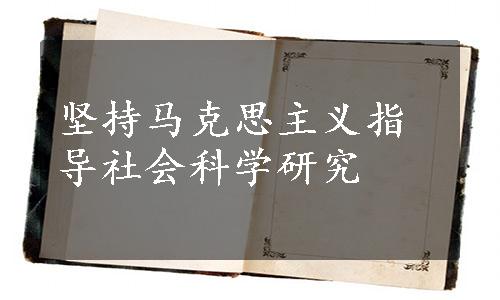 坚持马克思主义指
导社会科学研究